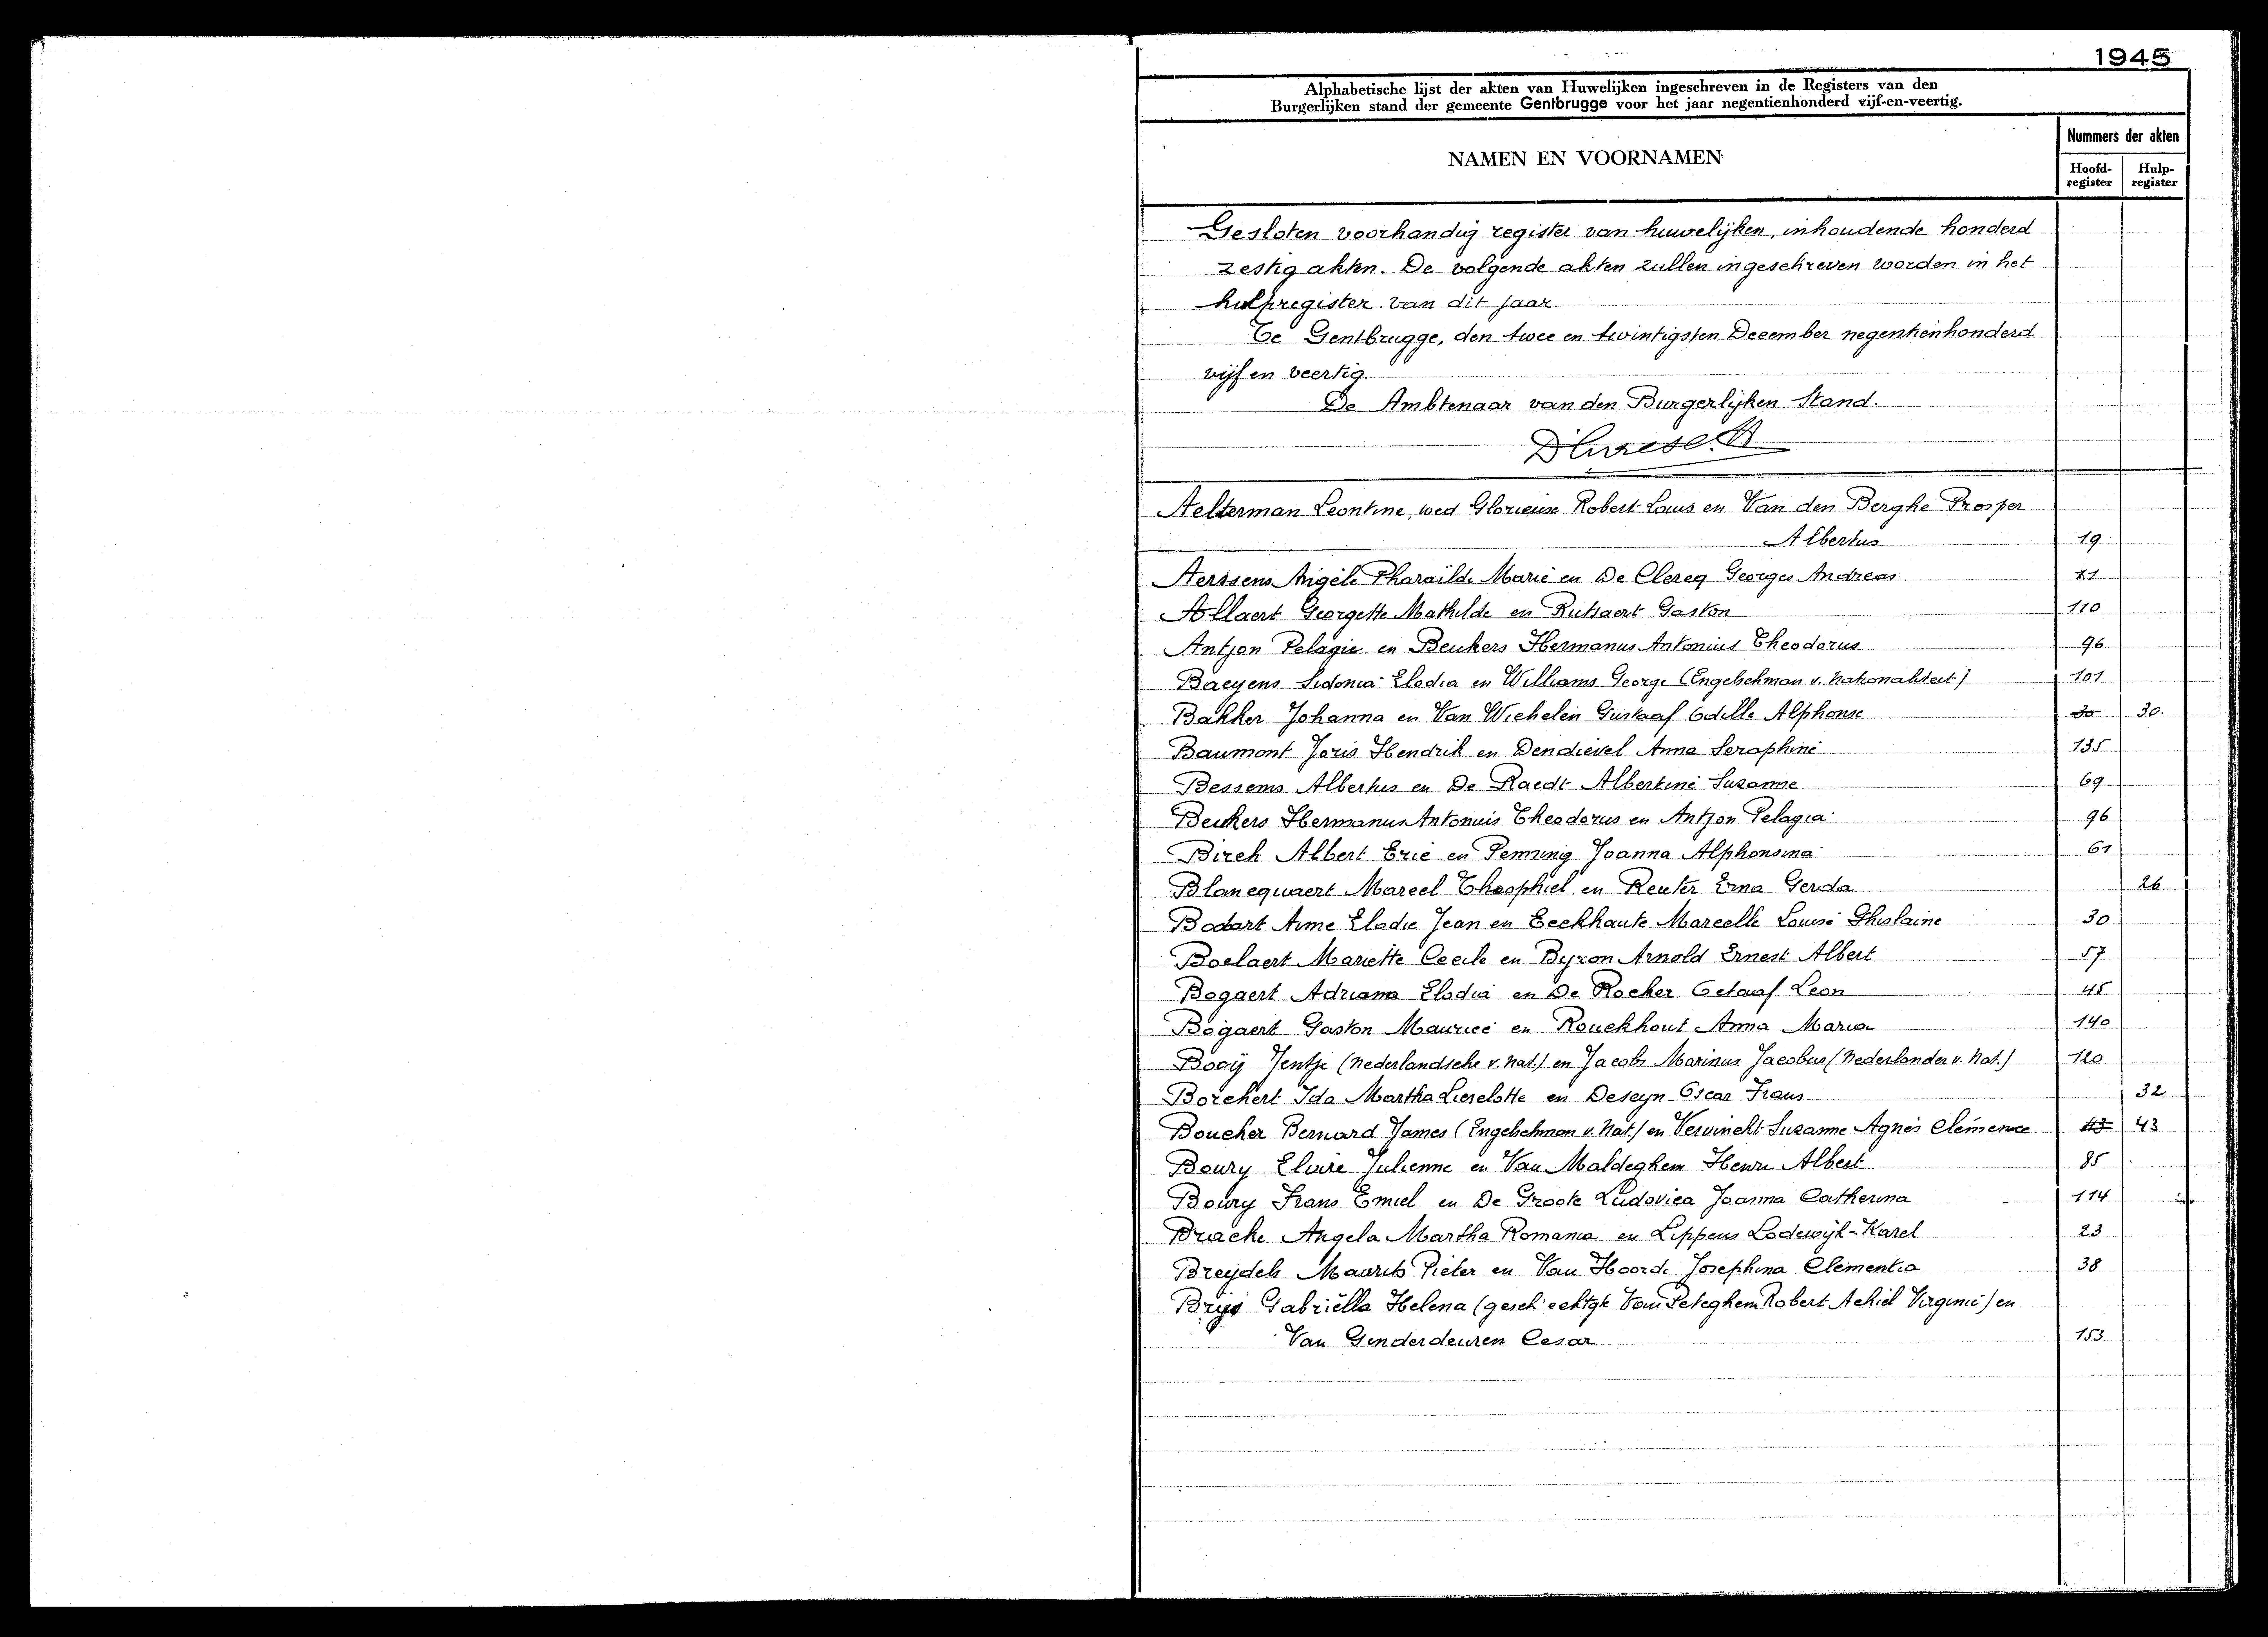 1945
Alphabetische lijst der akten van Huwelijken ingeschreven in de Registers van den
Burgerlijken stand der gemeente Gentbrugge voor het jaar negentienhonderd vijf-en-veertig.
NAMEN EN VOORNAMEN
Nummers der akten
Hoofd-register Hulp-register
Gesloten voorhandig register van huwelijken, inhoudende honderd
zestig akten. De volgende akten zullen ingeschreven worden in het
hulpregister van dit jaar.
Te Gentbrugge, den twee en twintigsten December negentienhonderd
vijf en veertig.
De Ambtenaar van den Burgerlijken Stand.
Aelterman Leontine, wed Glorieux Robert Louis en Van den Berghe Prosper
Albertus 19
Aerssens Angèle Pharaïlde Marie en De Clercq Georges Andreas 71
Allaert Georgette Mathilde en Rutsaert Gaston 110
Antjon Pelagie en Beukers Hermanus Antonius Theodorus 96
Baeyens Sidonia Elodia en Williams George (Engelschman v. nationaliteit) 101
Bakker Johanna en Van Wichelen Gustaaf Odille Alphonse 30 30.
Baumont Joris Hendrik en Dendievel Anna Seraphine 135
Bessems Albertus en De Raedt Albertine Suzanne 69
Beukers Hermanus Antonius Theodorus en Antjon Pelagia 96
Birch Albert Eric en Penning Joanna Alphonsina 61
Blancquaert Marcel Theophiel en Reuter Erna Gerda 26
Bodart Aimé Elodie Jean en Eeckhaute Marcelle Louise Ghislaine 30
Boelaert Mariette Cecile en Byron Arnold Ernest Albert 57
Bogaert Adriana Elodia en De Rocker Octaaf Leon 45
Bogaert Gaston Maurice en Rouckhout Anna Maria 140
Booij Jentje (Nederlandsche v. Nat.) en Jacobs Marinus Jacobus (Nederlander v. Nat.) 120
Borchert Ida Martha Lieselotte en Deseyn Oscar Frans 32
Boucher Bernard James (Engelschman v. Nat.) en Vervinckt Suzanne Agnès Clémence 43 43
Boury Claire Julienne en Van Maldeghem Henri Albert 85
Boury Frans Emiel en De Groote Ludovica Joanna Catherina 114
Bracke Angela Martha Romania en Lippens Lodewijk-Karel 23
Breydels Maurits Pieter en Van Hoorde Josephina Clementia 38
Brijs Gabriëlla Helena (gesch echtgte Van Peteghem Robert Achiel Virginie) en
Van Ginderdeuren Cesar 153